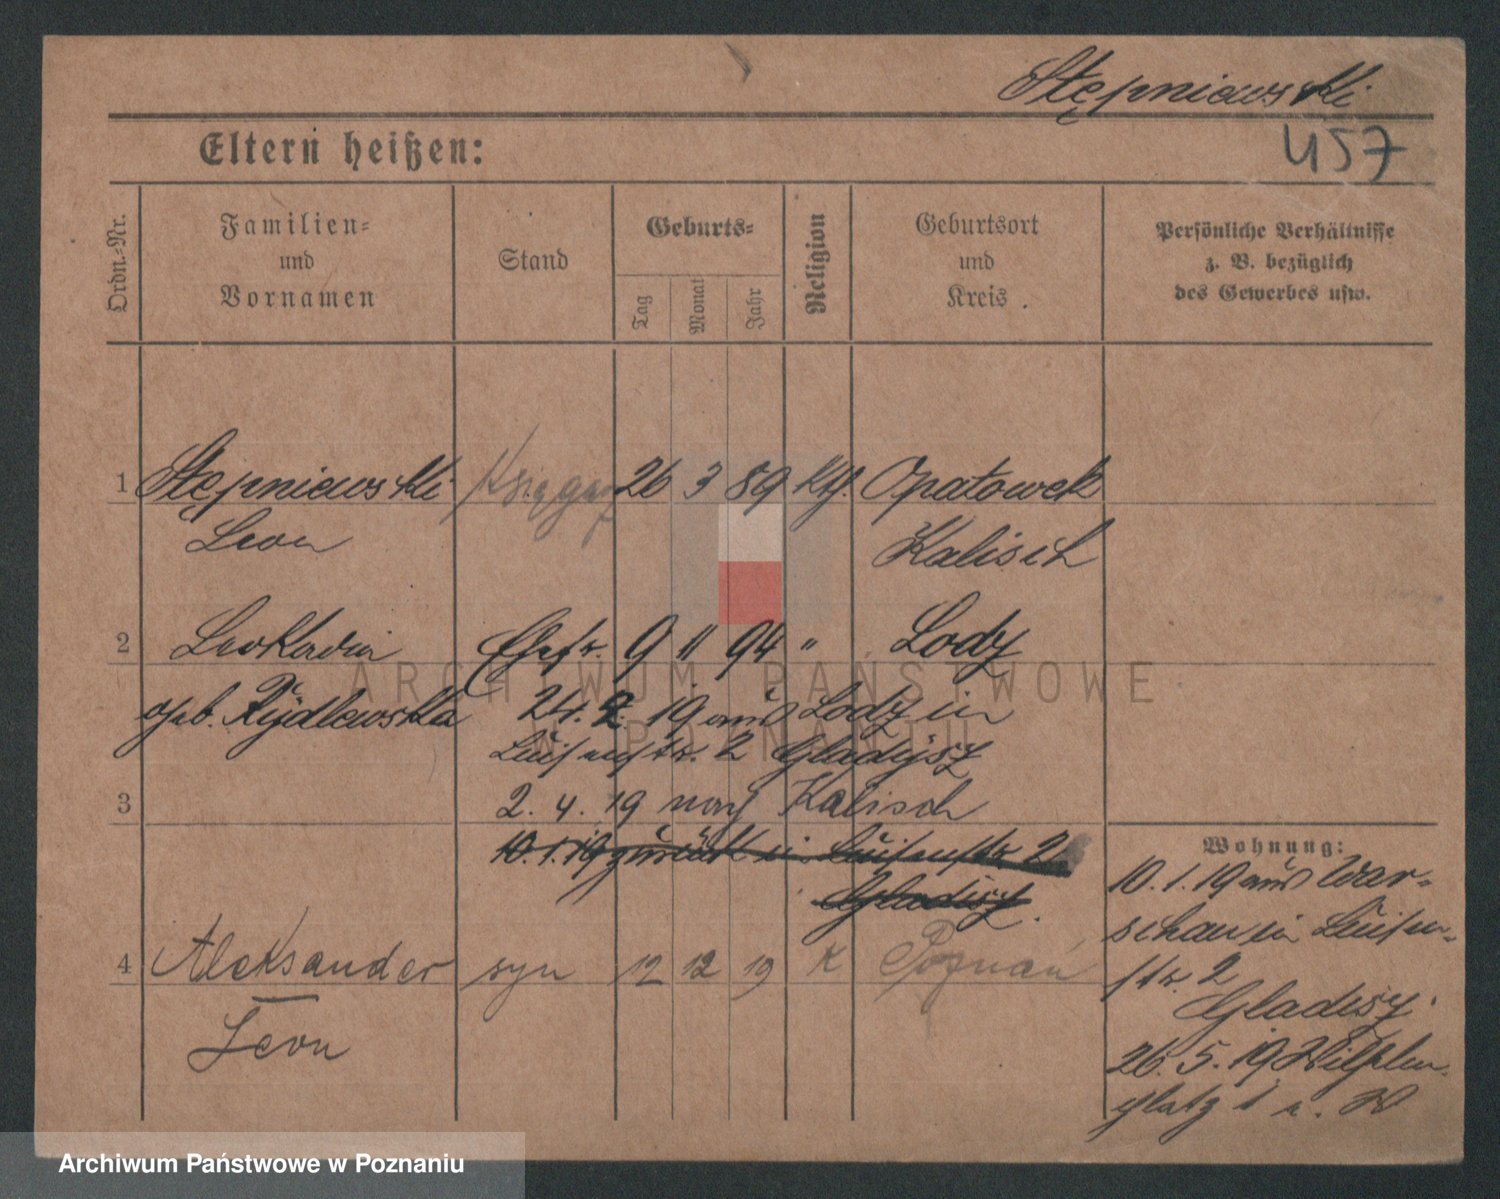 Stępniewski
457
Eltern heißen:
Ordn.-Nr.
Familien-
und
Vornamen
Stand
Geburts-
Tag
Monat
Jahr
Religion
Geburtsort
und
Kreis.
Persönliche Verhältnisse
z. B. bezüglich
des Gewerbes usw.
1 Stępniewski Księgarz 26 3 89 kth. Opatowek
Leon Kalisch
2 Leokadia Ehefr. 9 11 94 " Lody
geb. Rydlewska 24. 2. 19 aus Lodz in
Luisenstr. 2 Gladysz
3 2. 4. 19 nach Kalisch
10. 1. 19 zurück in Luisenstr 2
Gladisz.
Wohnung:
10. 1. 19 aus War-
schau in Luisen-
str. 2
Gladisz.
26. 5. 19 Wilhelm-
platz 1
4 Aleksander syn 12 12 19 K Poznań
Leon
ARCHIWUM PAŃSTWOWE
W POZNANIU
Archiwum Państwowe w Poznaniu